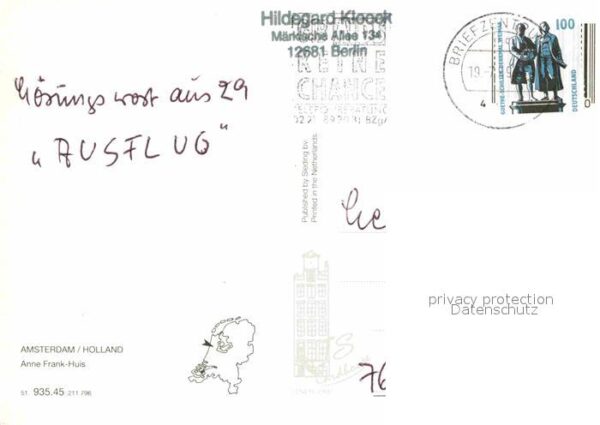 Hildegard Kloock
Märkische Allee 134
12681 Berlin
KEINE
CHANCE
BRIEFZENTRUM
19
4
100
GOETHE-SCHILLER-DENKMAL WEIMAR
DEUTSCHLAND
Lösungswort aus 29
„AUSFLUG“
Published by Sleding bv
Printed in the Netherlands
privacy protection
Datenschutz
AMSTERDAM / HOLLAND
Anne Frank-Huis
51. 935.45 211 796
76